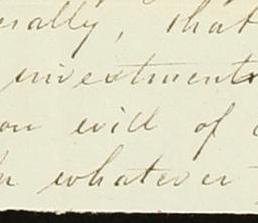 erally, that
investments
on will of
whatever